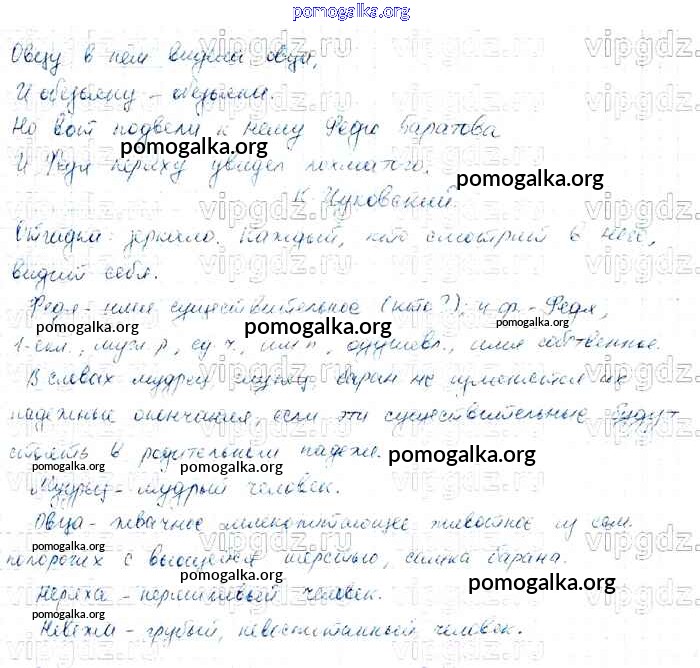 pomogalka.org
Овцу в нём видит овца,
И обезьяну – обезьяна.
Но вот подвели к нему Федю Баратова
pomogalka.org
И Федя неряху увидел лохматого.
pomogalka.org
К Чуковский.
Отгадка: зеркало. Каждый, кто смотрит в неё,
видит себя.
Федя – имя существительное (кто?); н.ф. – Федя,
pomogalka.org pomogalka.org
1-скл., муж.р, ед.ч, им.п, одушевл., имя собственное.
В словах мудрец глупец, баран не изменятся их
падежные окончания, если эти существительные будут
стоять в родительном падеже.
pomogalka.org pomogalka.org
Мудрец – мудрый человек.
pomogalka.org
Овца – жвачное млекопитающее животное из сем.
полорогих с вьющейся шерстью, самка барана.
pomogalka.org pomogalka.org pomogalka.org
Неряха – неряшливый человек.
pomogalka.org
Невежа – грубый, невоспитанный человек.
vipgdz.ru